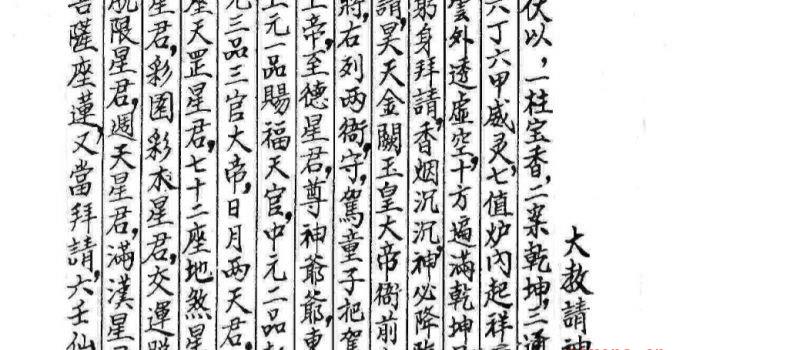 大教請神
伏以，一柱宝香，二案乾坤，三通
六丁六甲威灵，七值炉內起祥
雲外透虛空，十方遍滿乾坤
躬身拜請，香烟沉沉，神必降臨
請，昊天金闕玉皇大帝衙前
將，右列两衙守，駕童子把駕
上帝，至德星君，尊神爺爺，東
上元一品賜福天官，中元二品
元三品三官大帝，日月两天君，
座天罡星君，七十二座地煞星
星君，彩囡彩木星君，交運脫
脫限星君，週天星君，滿漢星君
菩薩座蓮，又當拜請，六壬仙